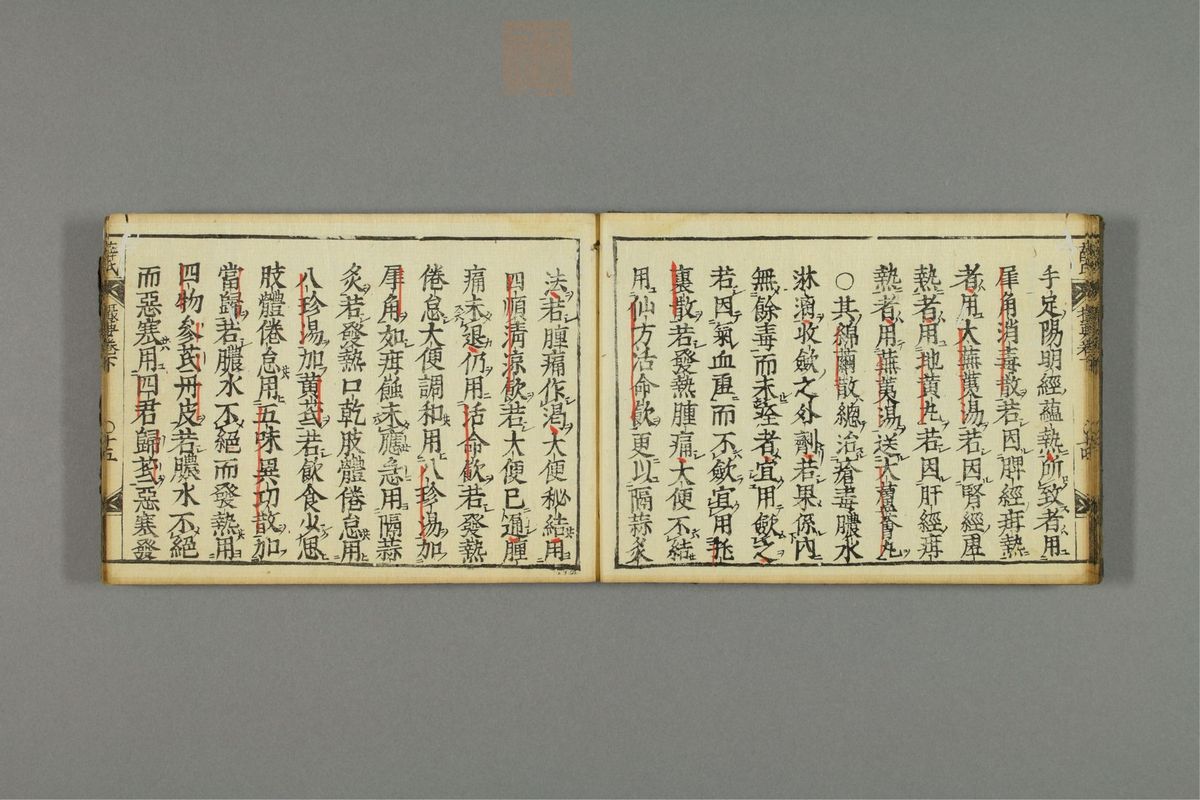 手足陽明經蘊熱所致者用
犀角消毒散若因脾經疳熱
者用大蕪荑湯若因腎經虛
熱者用地黃丸若因肝經疳
熱者用蕪荑湯送大蘆薈丸
○其綿繭散總治瘡毒膿水
淋漓收歛之外劑若果係內
無餘毒而未痊者宜用歛之
若因氣血虛而不歛宜用托
裏散若發熱腫痛大便不結
用仙方活命飲更以隔蒜灸
法若腫痛作渴大便秘結用
四順清涼飲若大便已通腫
痛未退仍用活命飲若發熱
倦怠大便調和用八珍湯加
犀角如疳蝕未應急用隔蒜
灸若發熱口乾肢體倦怠用
八珍湯加黃芪若飲食少思
肢體倦怠用五味異功散加
當歸若膿水不絕而發熱用
四物參芪丹皮若膿水不絕
而惡寒用四君歸芪惡寒發
薛氏
○十五